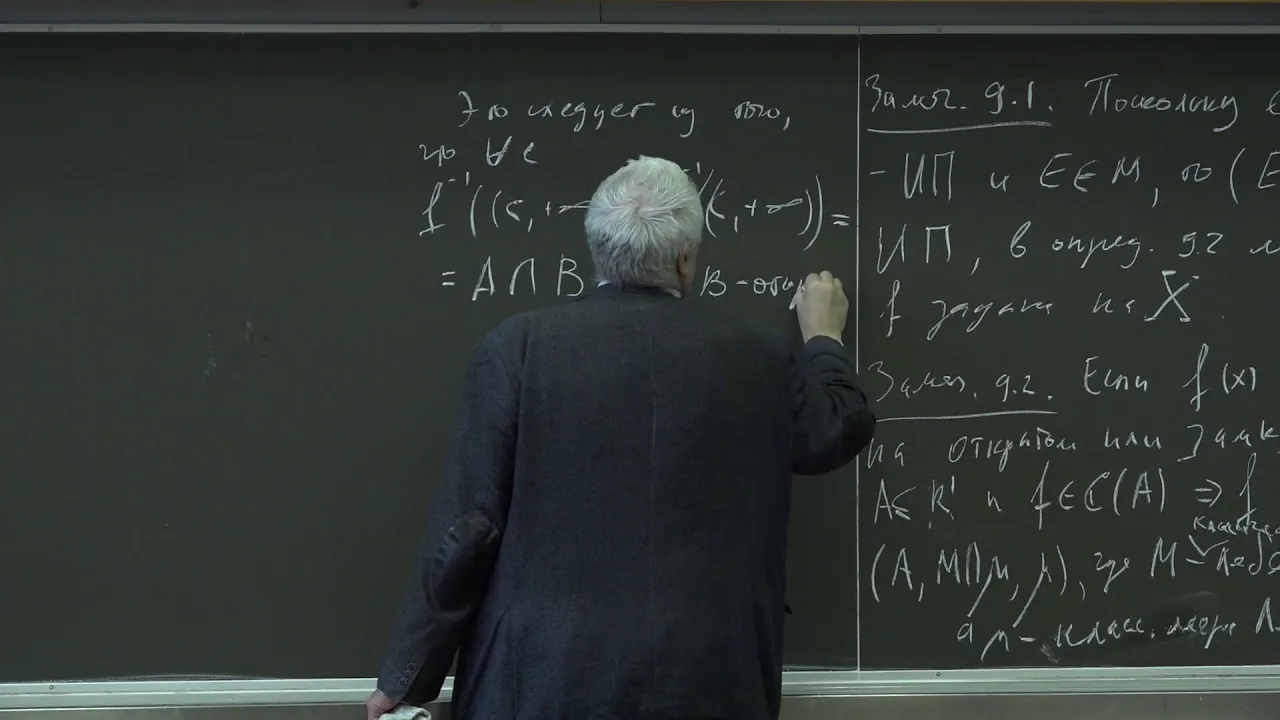 Это следует из того,
что ∀ c
f⁻¹((c, +∞ ⁻¹((c, +∞)) =
= A ∩ B B - откр
Замеч. 9.1. Поскольку
- ИП и E ∈ M, то (E
ИП, в опред. 9.2
f задана на X.
Замеч. 9.2. Если f(x)
на открытом или замк
A ⊆ R¹ и f ∈ C(A) ⇒ f
(A, M∩μ, μ), где M -
а μ - класс. мера